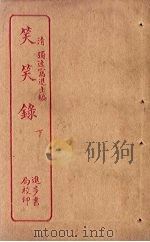 清 獨逸窩退士編
笑笑錄
下
進步書局校印